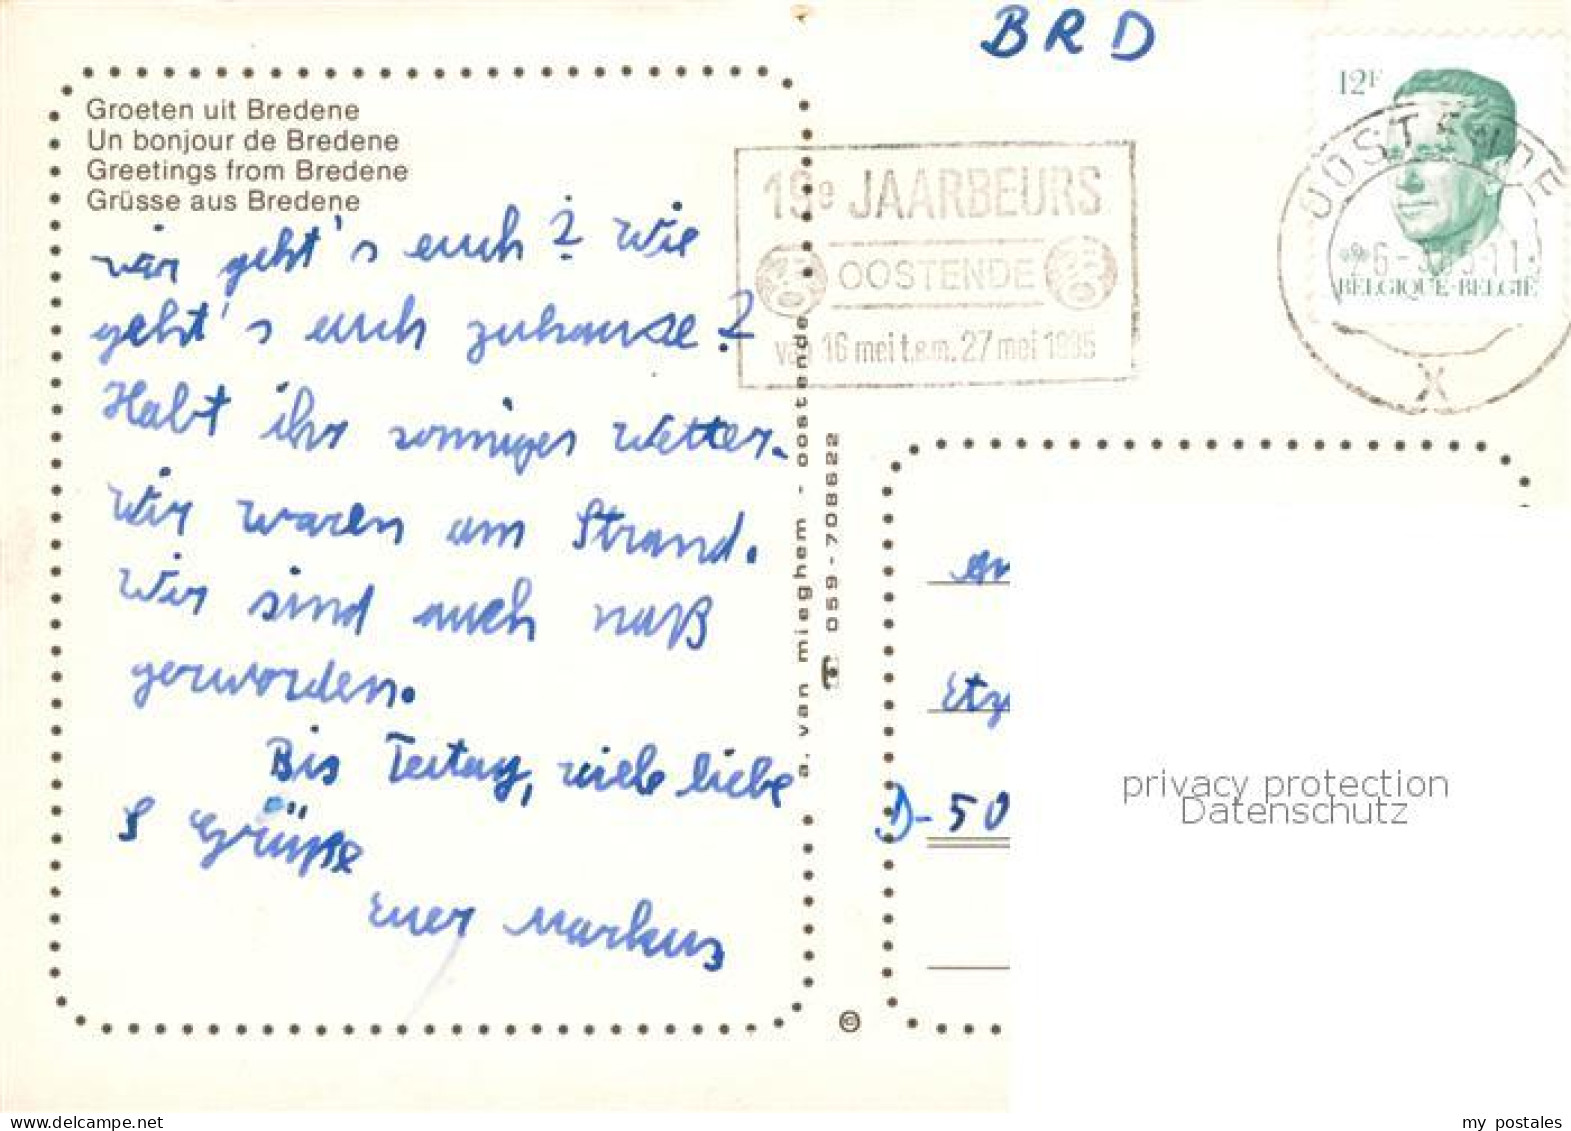 BRD
Groeten uit Bredene
Un bonjour de Bredene
Greetings from Bredene
Grüsse aus Bredene
wir geht's euch? Wie
geht's euch zuhause?
Habt ihr sonniges Wetter.
Wir waren am Strand.
Wir sind auch naß
geworden.
Bis Teitag, viele liebe
Grüße
Euer Markus
a. van mieghem - oostende
059-708622
©
19e JAARBEURS
OOSTENDE
van 16 mei t.e.m. 27 mei 1985
12F
BELGIQUE·BELGIË
OOSTENDE
X
Etz
D-50
privacy protection
Datenschutz
www.delcampe.net
my_postales